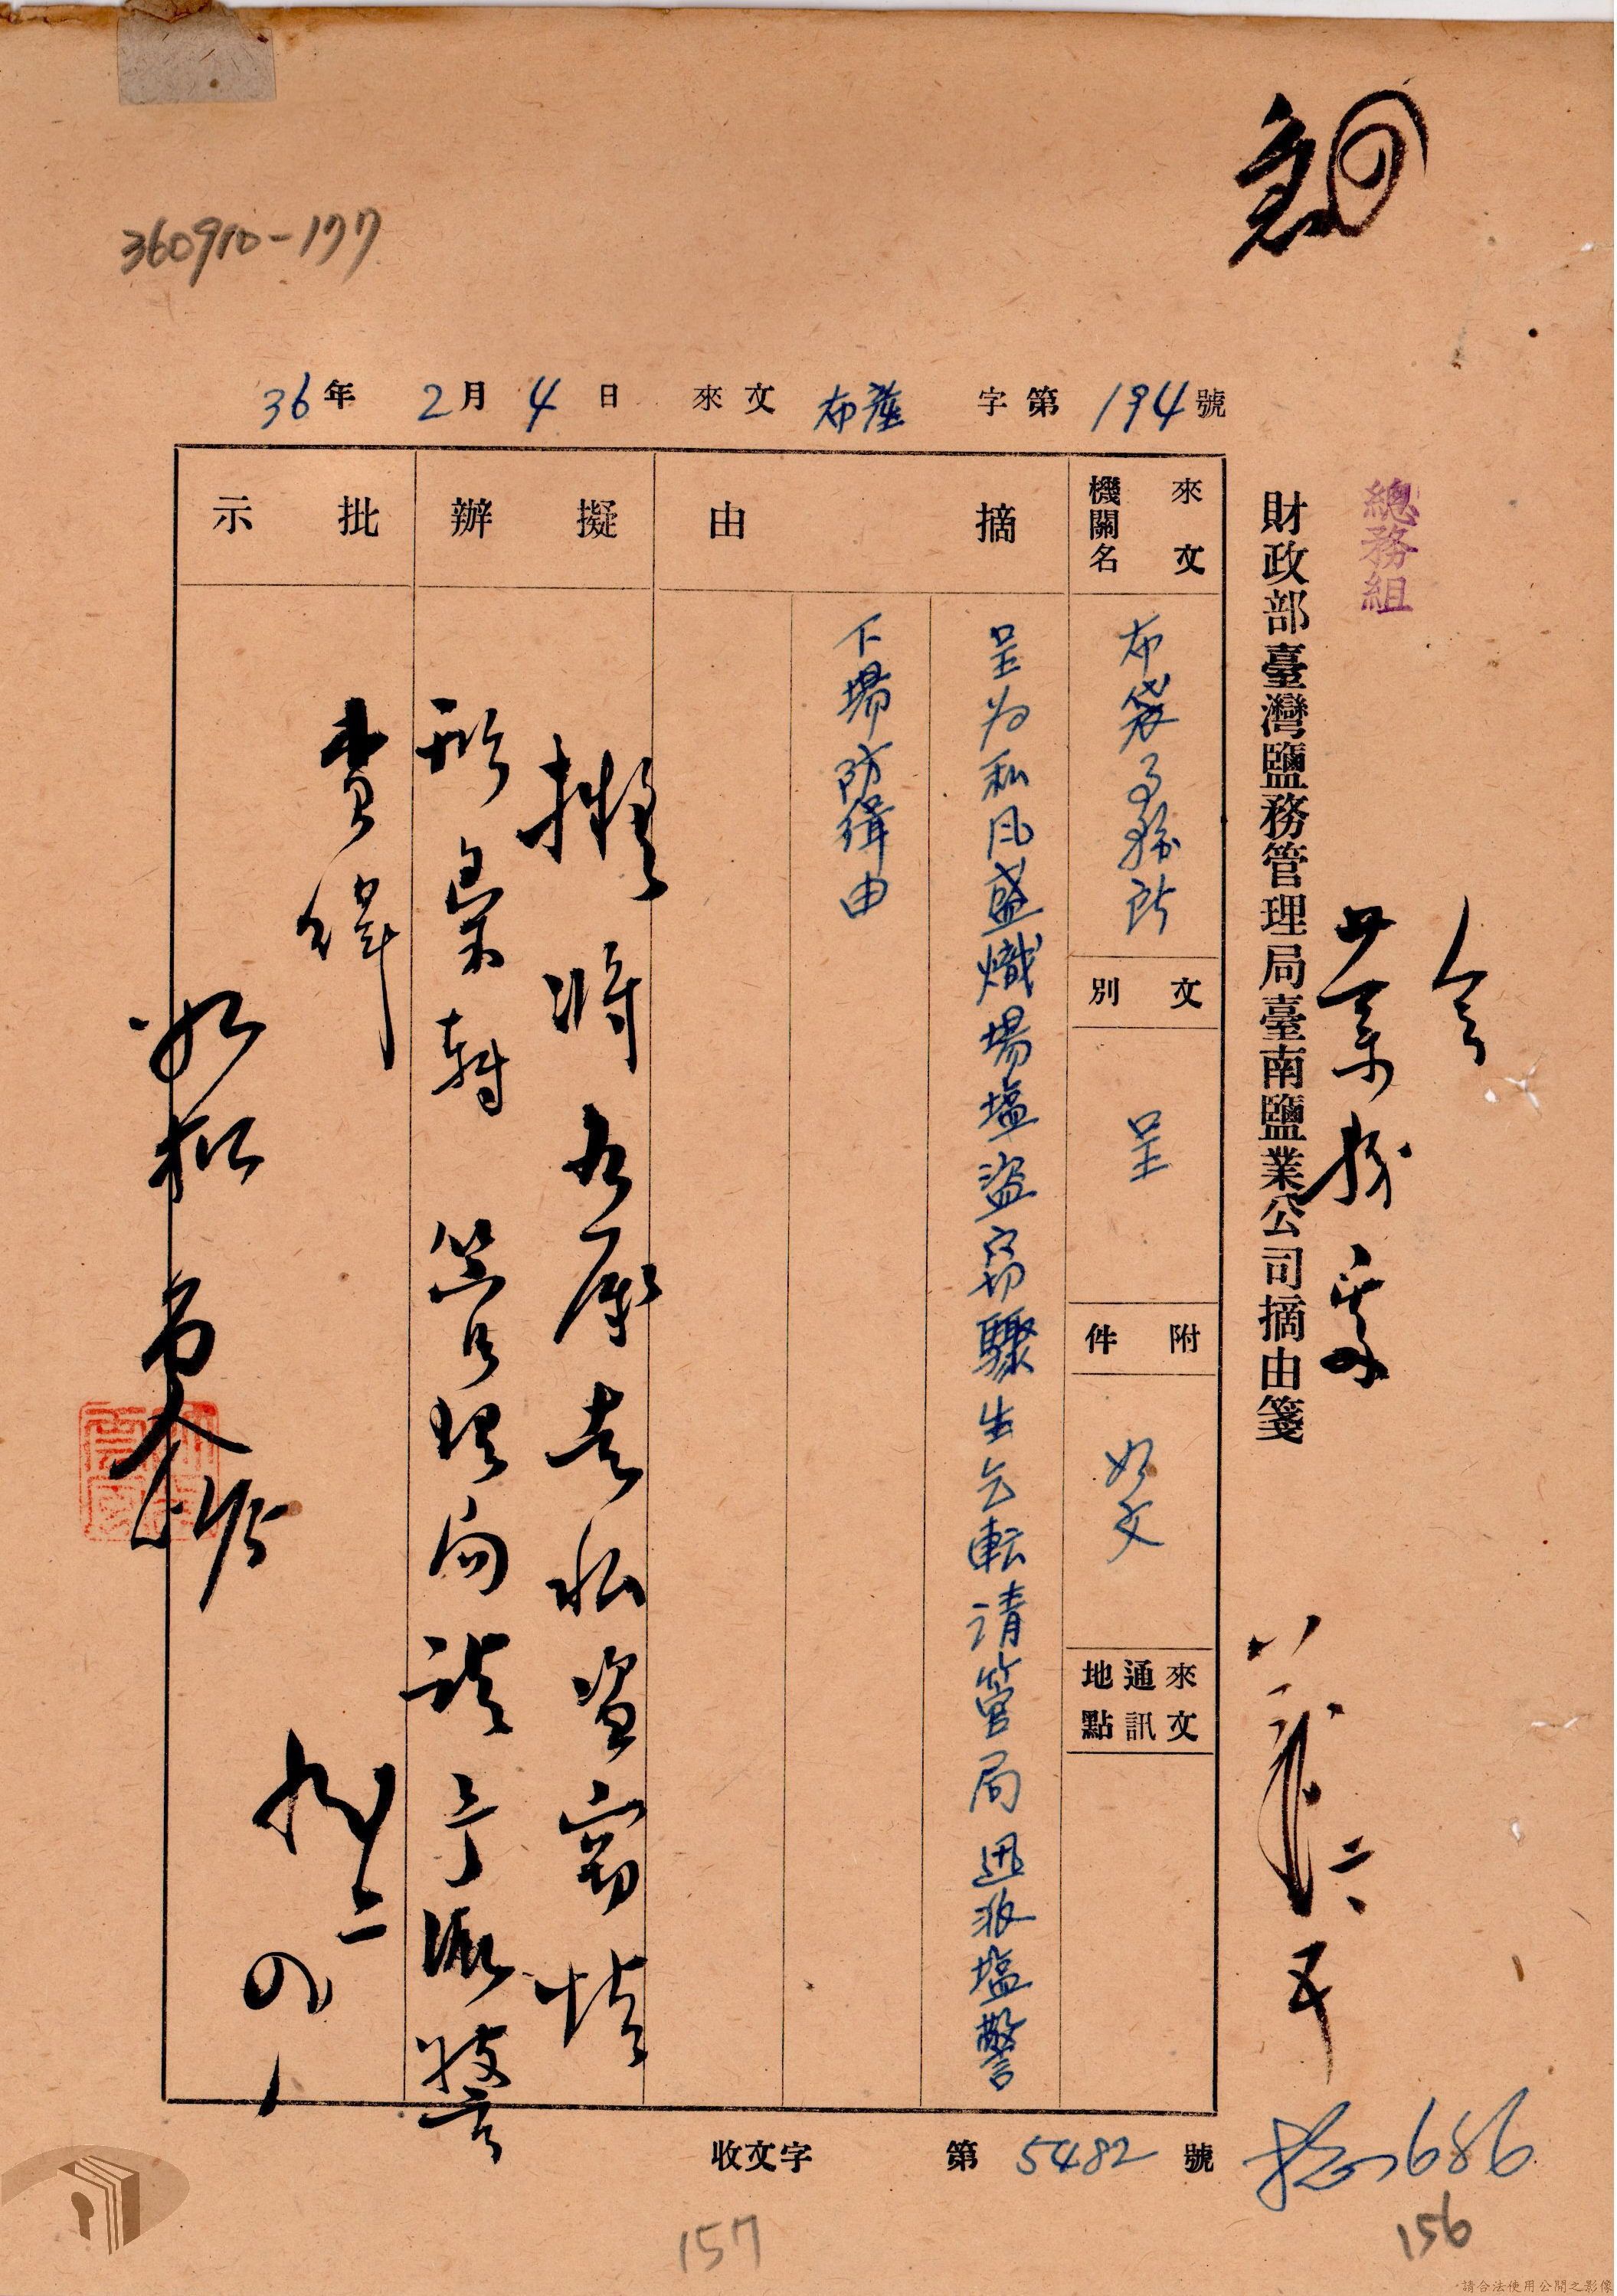 急
360910-177
36年 2月 4日 來文 布產 字第 194 號
總務組
財政部臺灣鹽務管理局臺南鹽業公司摘由箋
會
業務
來文機關名
布袋事務所
文別
呈
附件
如文
來文通訊地點
摘由
呈為私風盛熾場塩盜竊驟生乞転請管局迅派塩警
下場防緝由
擬辦
擬將
走私盜竊情
形彙轉 管理局請予派警
查緝
批示
如擬
二
收文字 第 5482 號
686
156
157
請合法使用公開之影像